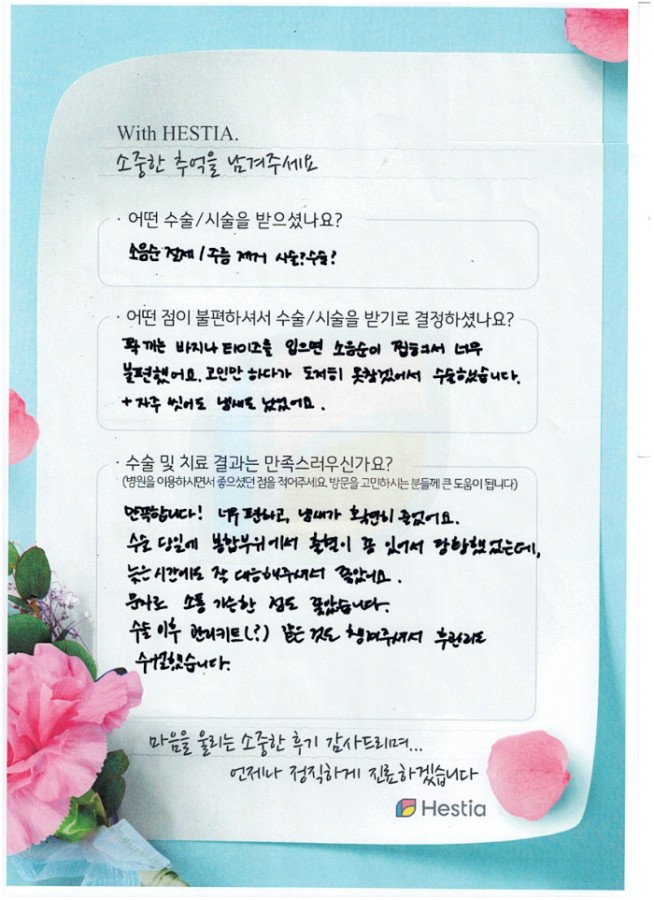 With HESTIA.
소중한 추억을 남겨주세요
· 어떤 수술/시술을 받으셨나요?
소음순 절제 / 주름 제거 시술?수술?
· 어떤 점이 불편하셔서 수술/시술을 받기로 결정하셨나요?
꽉 끼는 바지나 타이즈를 입으면 소음순이 접혀서 너무
불편했어요. 고민만 하다가 도저히 못참겠어서 수술했습니다.
+ 자주 씻어도 냄새도 났었어요.
· 수술 및 치료 결과는 만족스러우신가요?
(병원을 이용하시면서 좋으셨던 점을 적어주세요. 방문을 고민하시는 분들께 큰 도움이 됩니다)
만족합니다! 너무 편하고, 냄새가 확연히 줄었어요.
수술 당일에 봉합부위에서 출혈이 좀 있어서 당황했었는데,
늦은 시간에도 잘 대응해주셔서 좋았어요.
문자로 소통 가능한 점도 좋았습니다.
수술 이후 관리키트(?) 같은 것도 챙겨주셔서 후관리도
수월했습니다.
마음을 울리는 소중한 후기 감사드리며...
언제나 정직하게 진료하겠습니다
Hestia